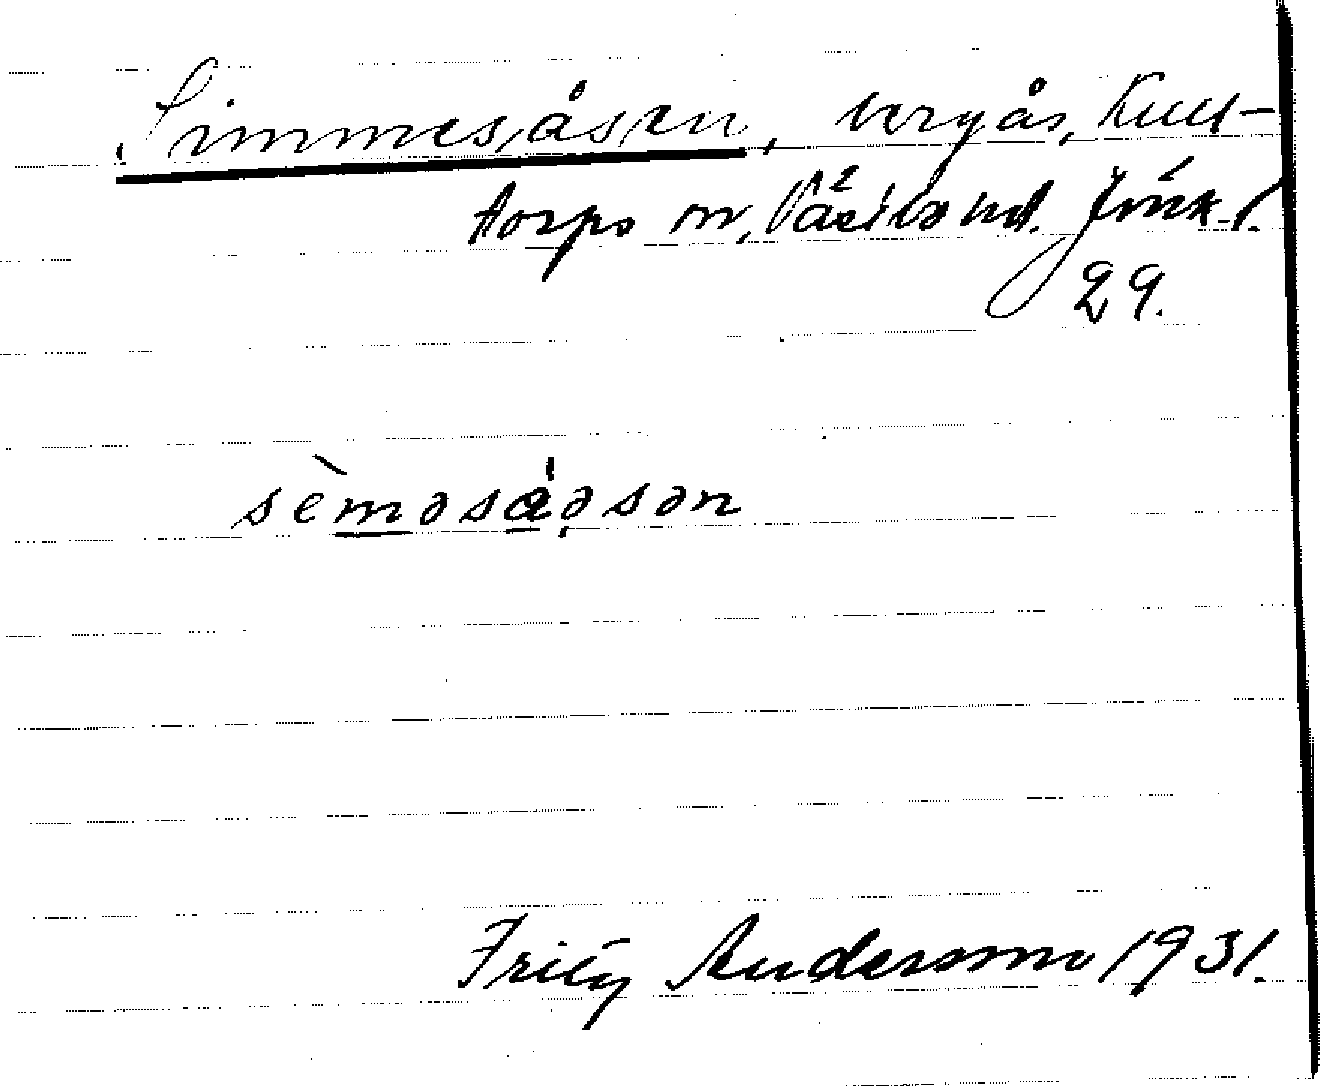 Simmesåsen, bergås, Kull-
torps m, Västbo hd. Jönk. l.
29.
sèməsåəsən
Fritz Andersson 1931.